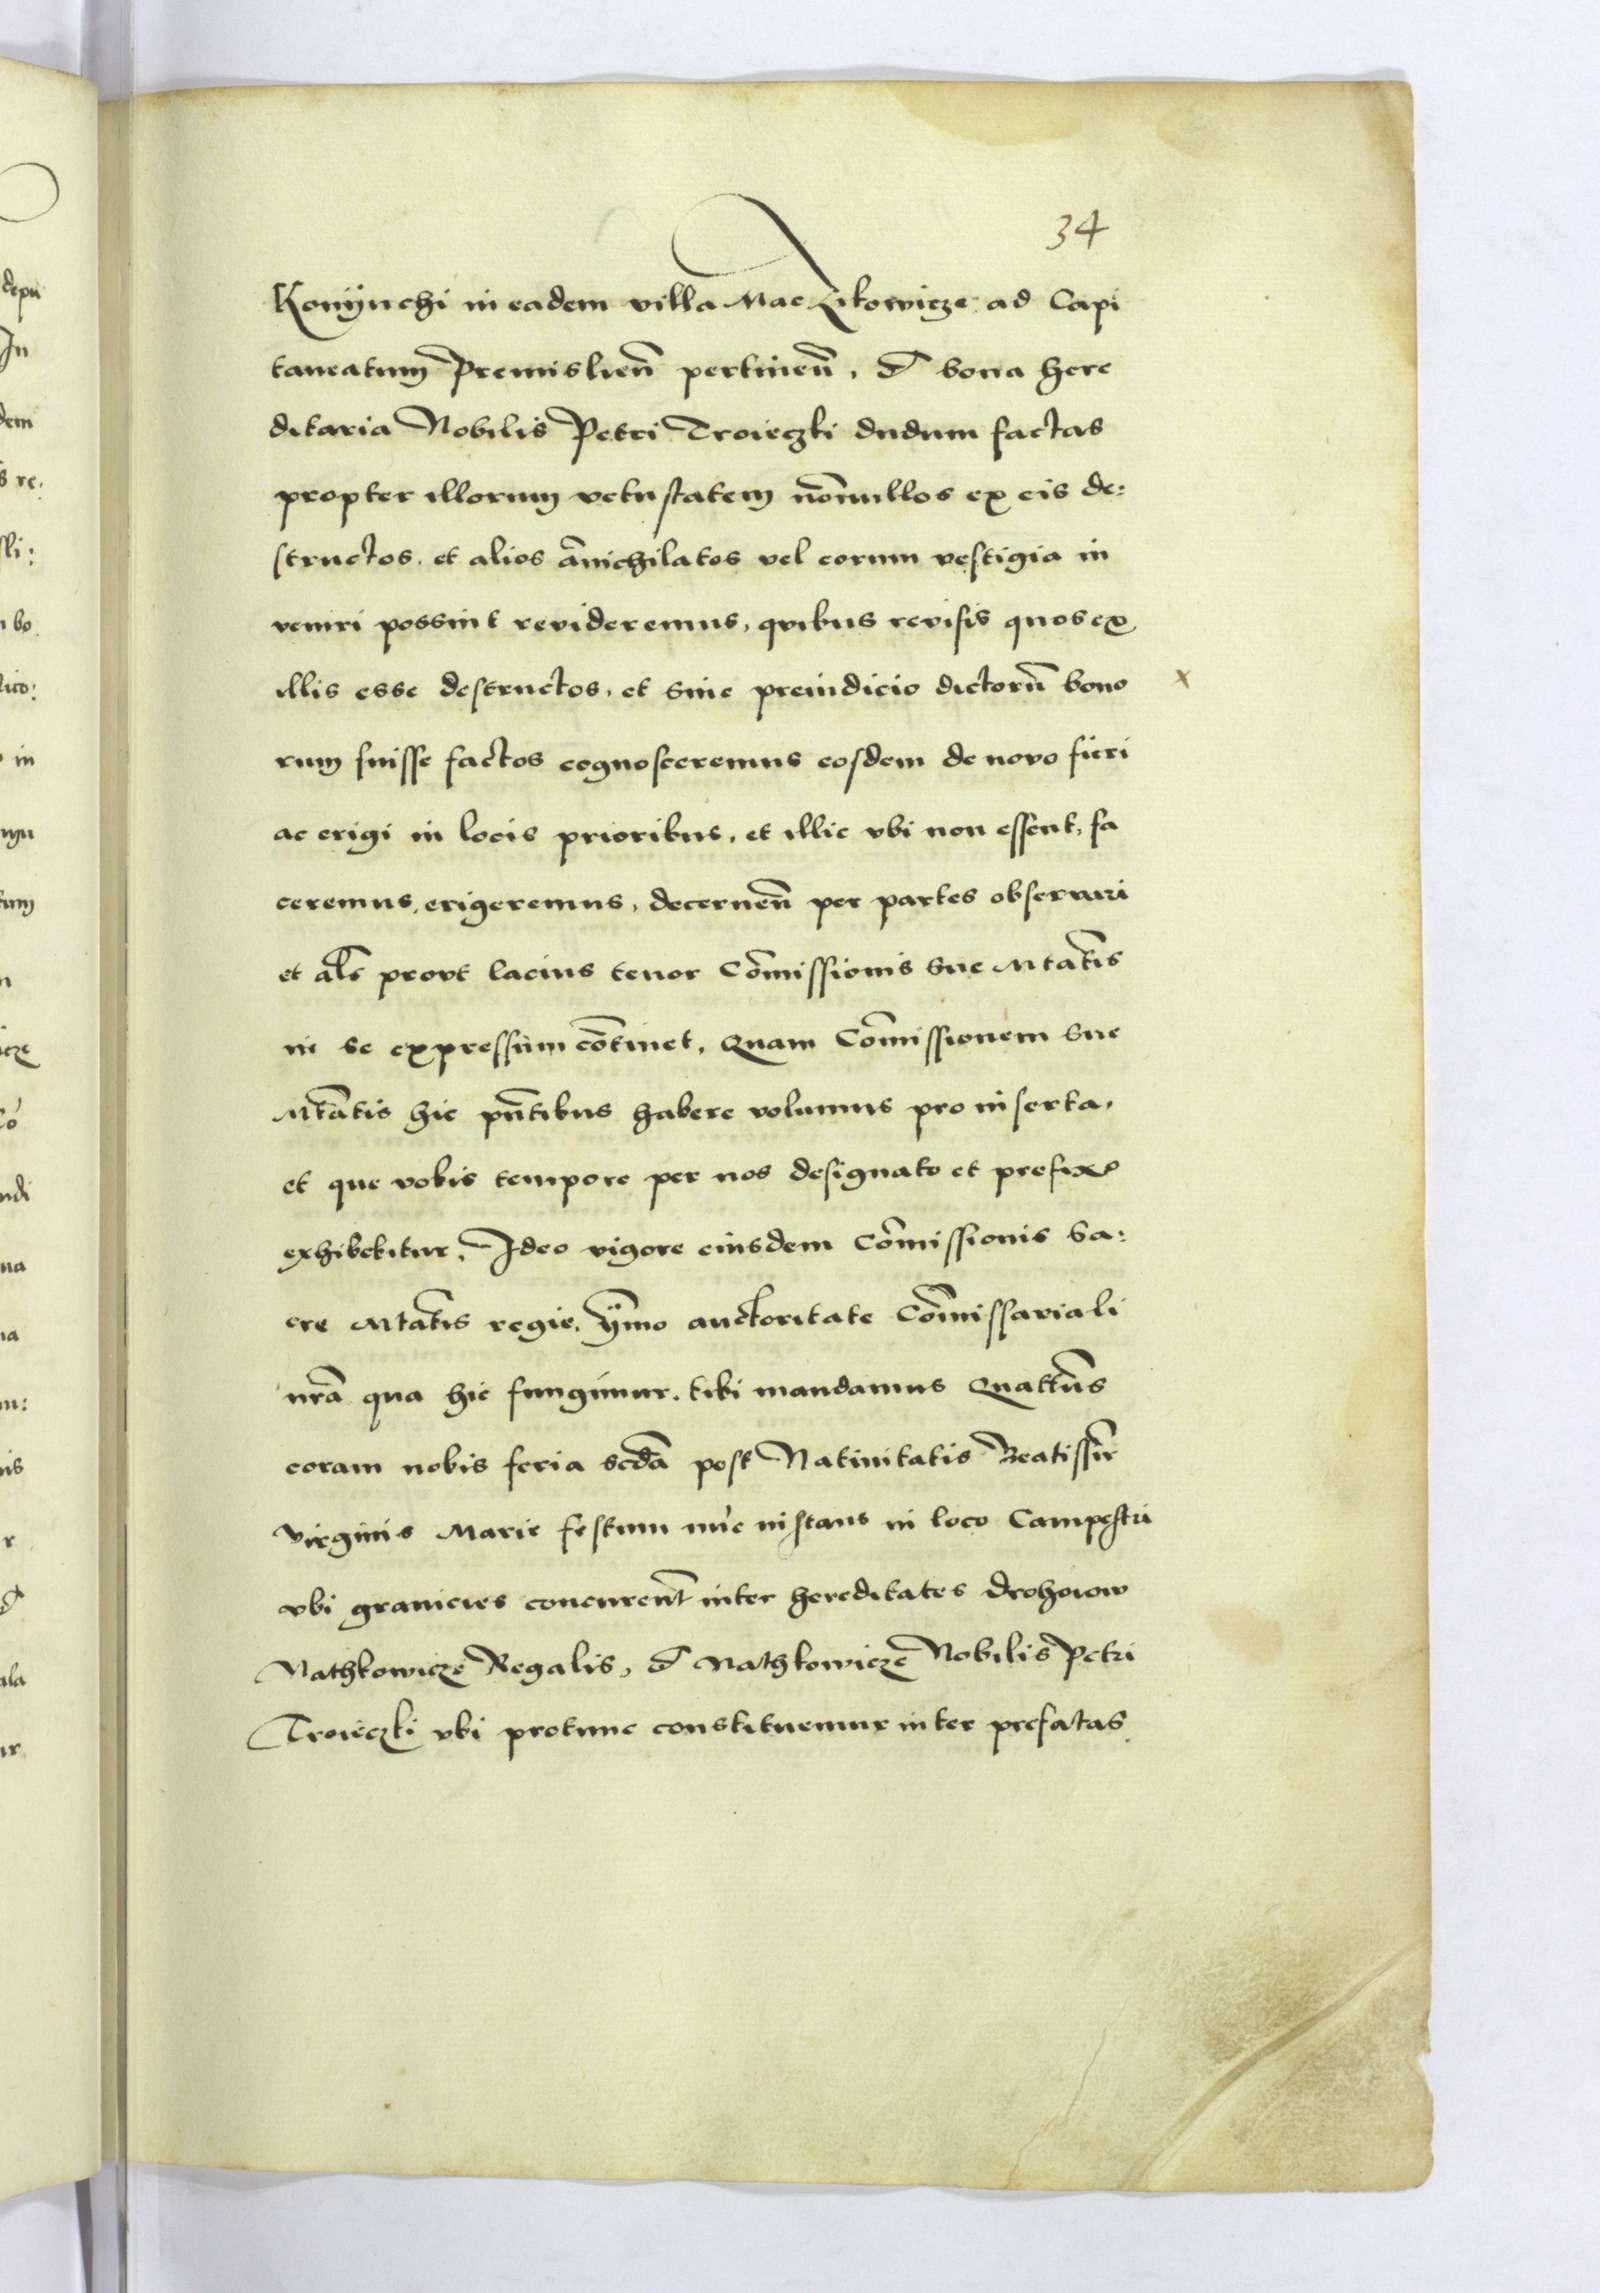 34
Konÿuchi in eadem villa Mac ad Capi
taneatum Premislien̄ pertinen̄, et bona here
ditaria Nobilis Petri Troieczki dudum factas
propter illorum vetustatem nōnullos ex eis de:
structos, et alios ānichilatos vel eorum vestigia in
veniri possint revideremus, quibus revisis quos ex
illis esse destructos, et sine preiudicio dictorū bono
x
rum fuisse factos cognosceremus eosdem de novo fieri
ac erigi in locis prioribus, et illic vbi non essent, fa
ceremus, erigeremus, decernen̄ per partes obseruari
et al̄s prout lacius tenor Cōmissionis Sue Mtat̄is
in se expressum cōtinet, Quam Cōmissionem Sue
Mtātis hic pn̄tibus habere volumus pro inserta,
et que vobis tempore per nos designato et prefixo
exhibebitur, Ideo vigore eiusdem Cōmissionis Sa:
cre Mtat̄is regie, ȳmo auctoritate Cōmissariali
nr̄a qua hic fungimur, tibi mandamus Quatten̄s
coram nobis feria scd̄a post Natiuitatis Beatissīe
virginis Marie festum nūc instans in loco Campestri
vbi granicies concurren̄t inter hereditates Drohoiow
Nathkowicze Regalis, et Nathkowicze Nobilis Petri
Troieczki vbi protunc constituemur inter prefatas